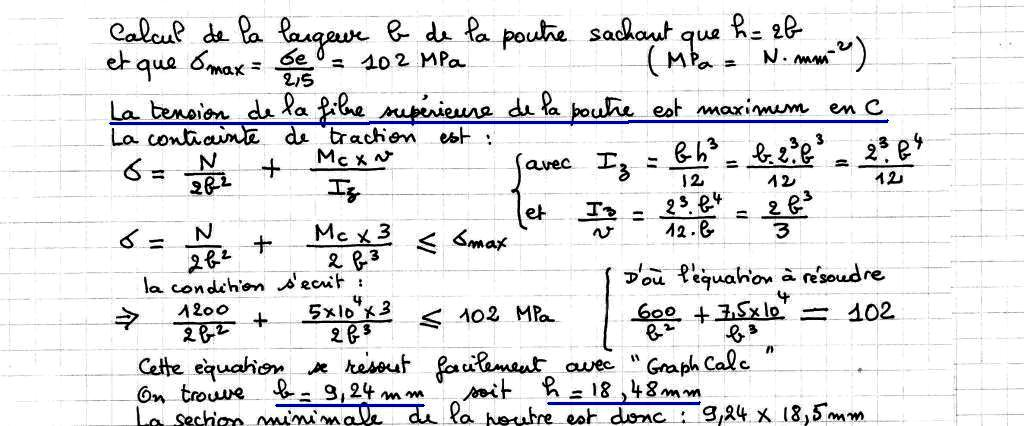 Calcul de la largeur b de la poutre sachant que h = 2b
et que σmax = σe/2,5 = 102 MPa (MPa = N·mm⁻²)
La tension de la fibre supérieure de la poutre est maximum en C
La contrainte de traction est :
σ = N/2b² + Mc × v/Iz { avec Iz = bh³/12 = b·2³·b³/12 = 2³·b⁴/12
et Iz/v = 2³·b⁴/12·b = 2b³/3
σ = N/2b² + Mc × 3/2b³ ≤ σmax
la condition s'écrit : D'où l'équation à résoudre
⇒ 1200/2b² + 5×10⁴×3/2b³ ≤ 102 MPa { 600/b² + 7,5×10⁴/b³ = 102
Cette équation se résout facilement avec "GraphCalc"
On trouve b = 9,24 mm soit h = 18,48 mm
La section minimale de la poutre est donc : 9,24 × 18,5 mm